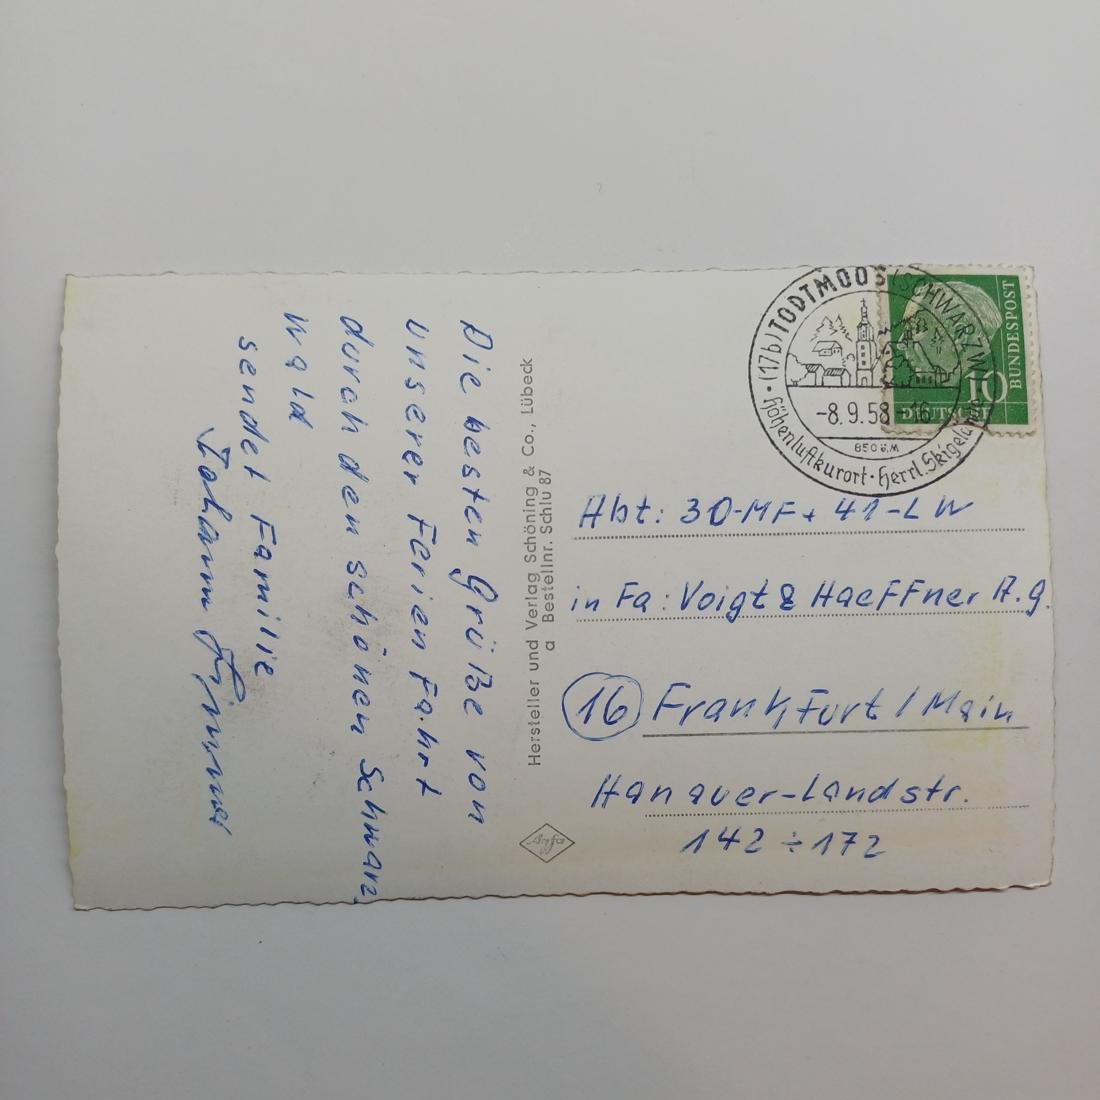 Die besten Grüße von
unserer Ferien Fahrt
durch den schönen Schwarz
wald
sendet Familie
Johann
Hersteller und Verlag Schöning & Co., Lübeck
a Bestellnr. Schlu 87
Agfa
(17b) TODTMOOS (SCHWARZW
-8.9.58-16
850 ü.M
Höhenluftkurort · Herrl. Skigelände
BUNDESPOST
10
DEUTSCHE
Abt: 30-MF + 41-LW
in Fa: Voigt & Haeffner A.g.
16 Frankfurt / Main
Hanauer-Landstr.
142 ÷ 172